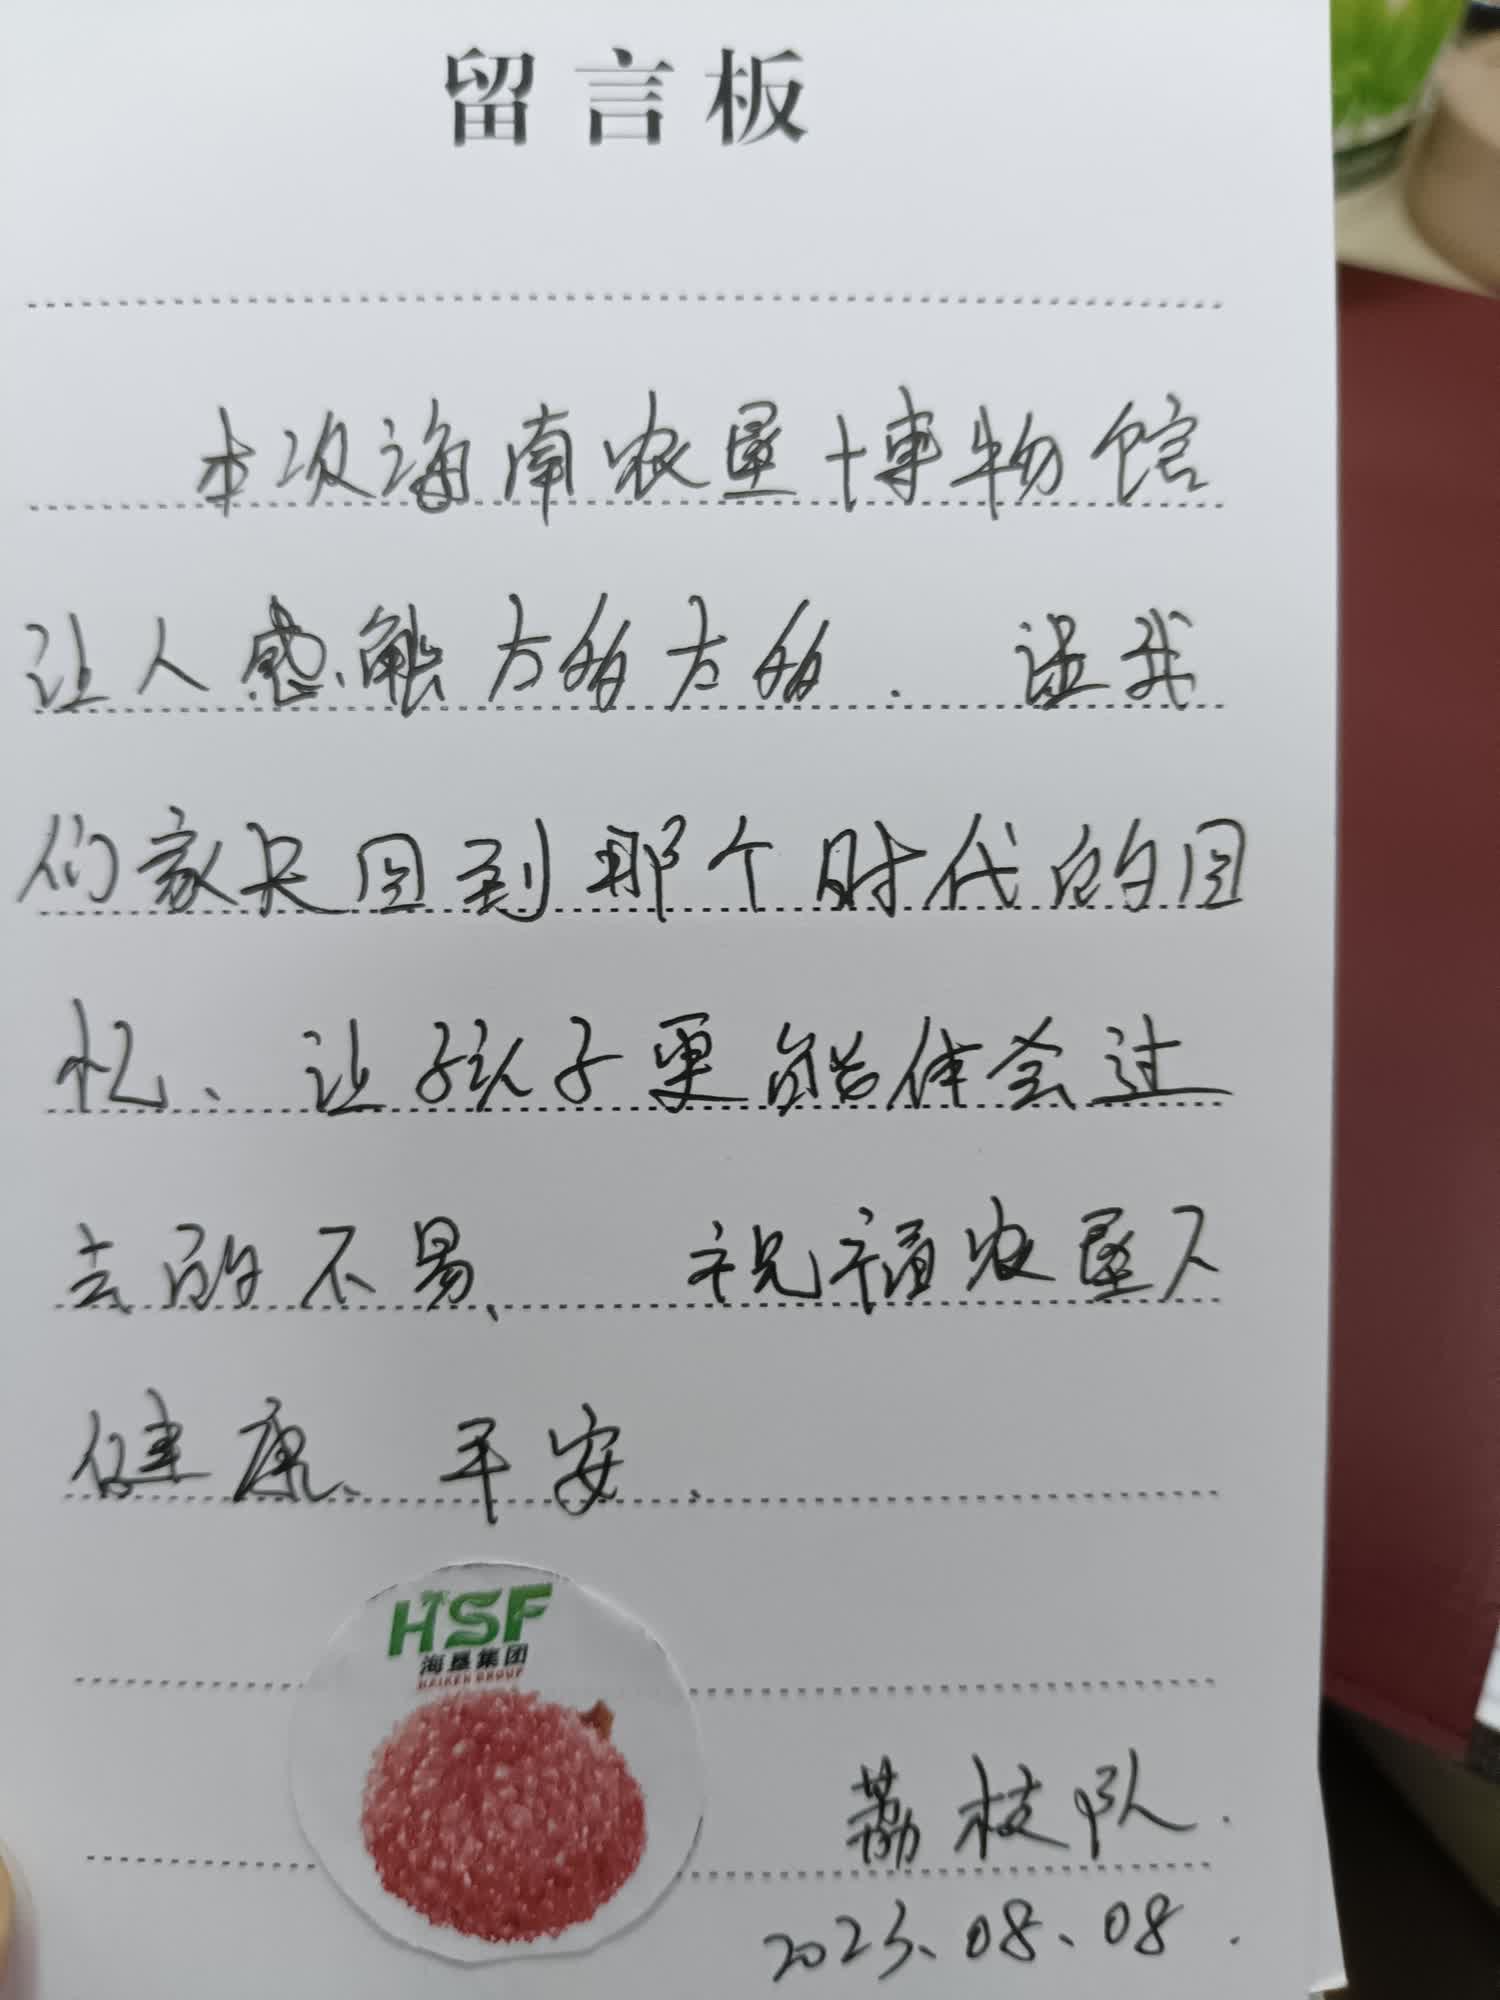 留言板
本次海南农垦博物馆
让人感触方多方多. 让我
们家长回到那个时代的回
忆、让孩子更能体会过
去的不易、 祝福农垦人
健康、平安.
HSF
海垦集团
HAIKEN GROUP
荔枝队.
2023.08.08.